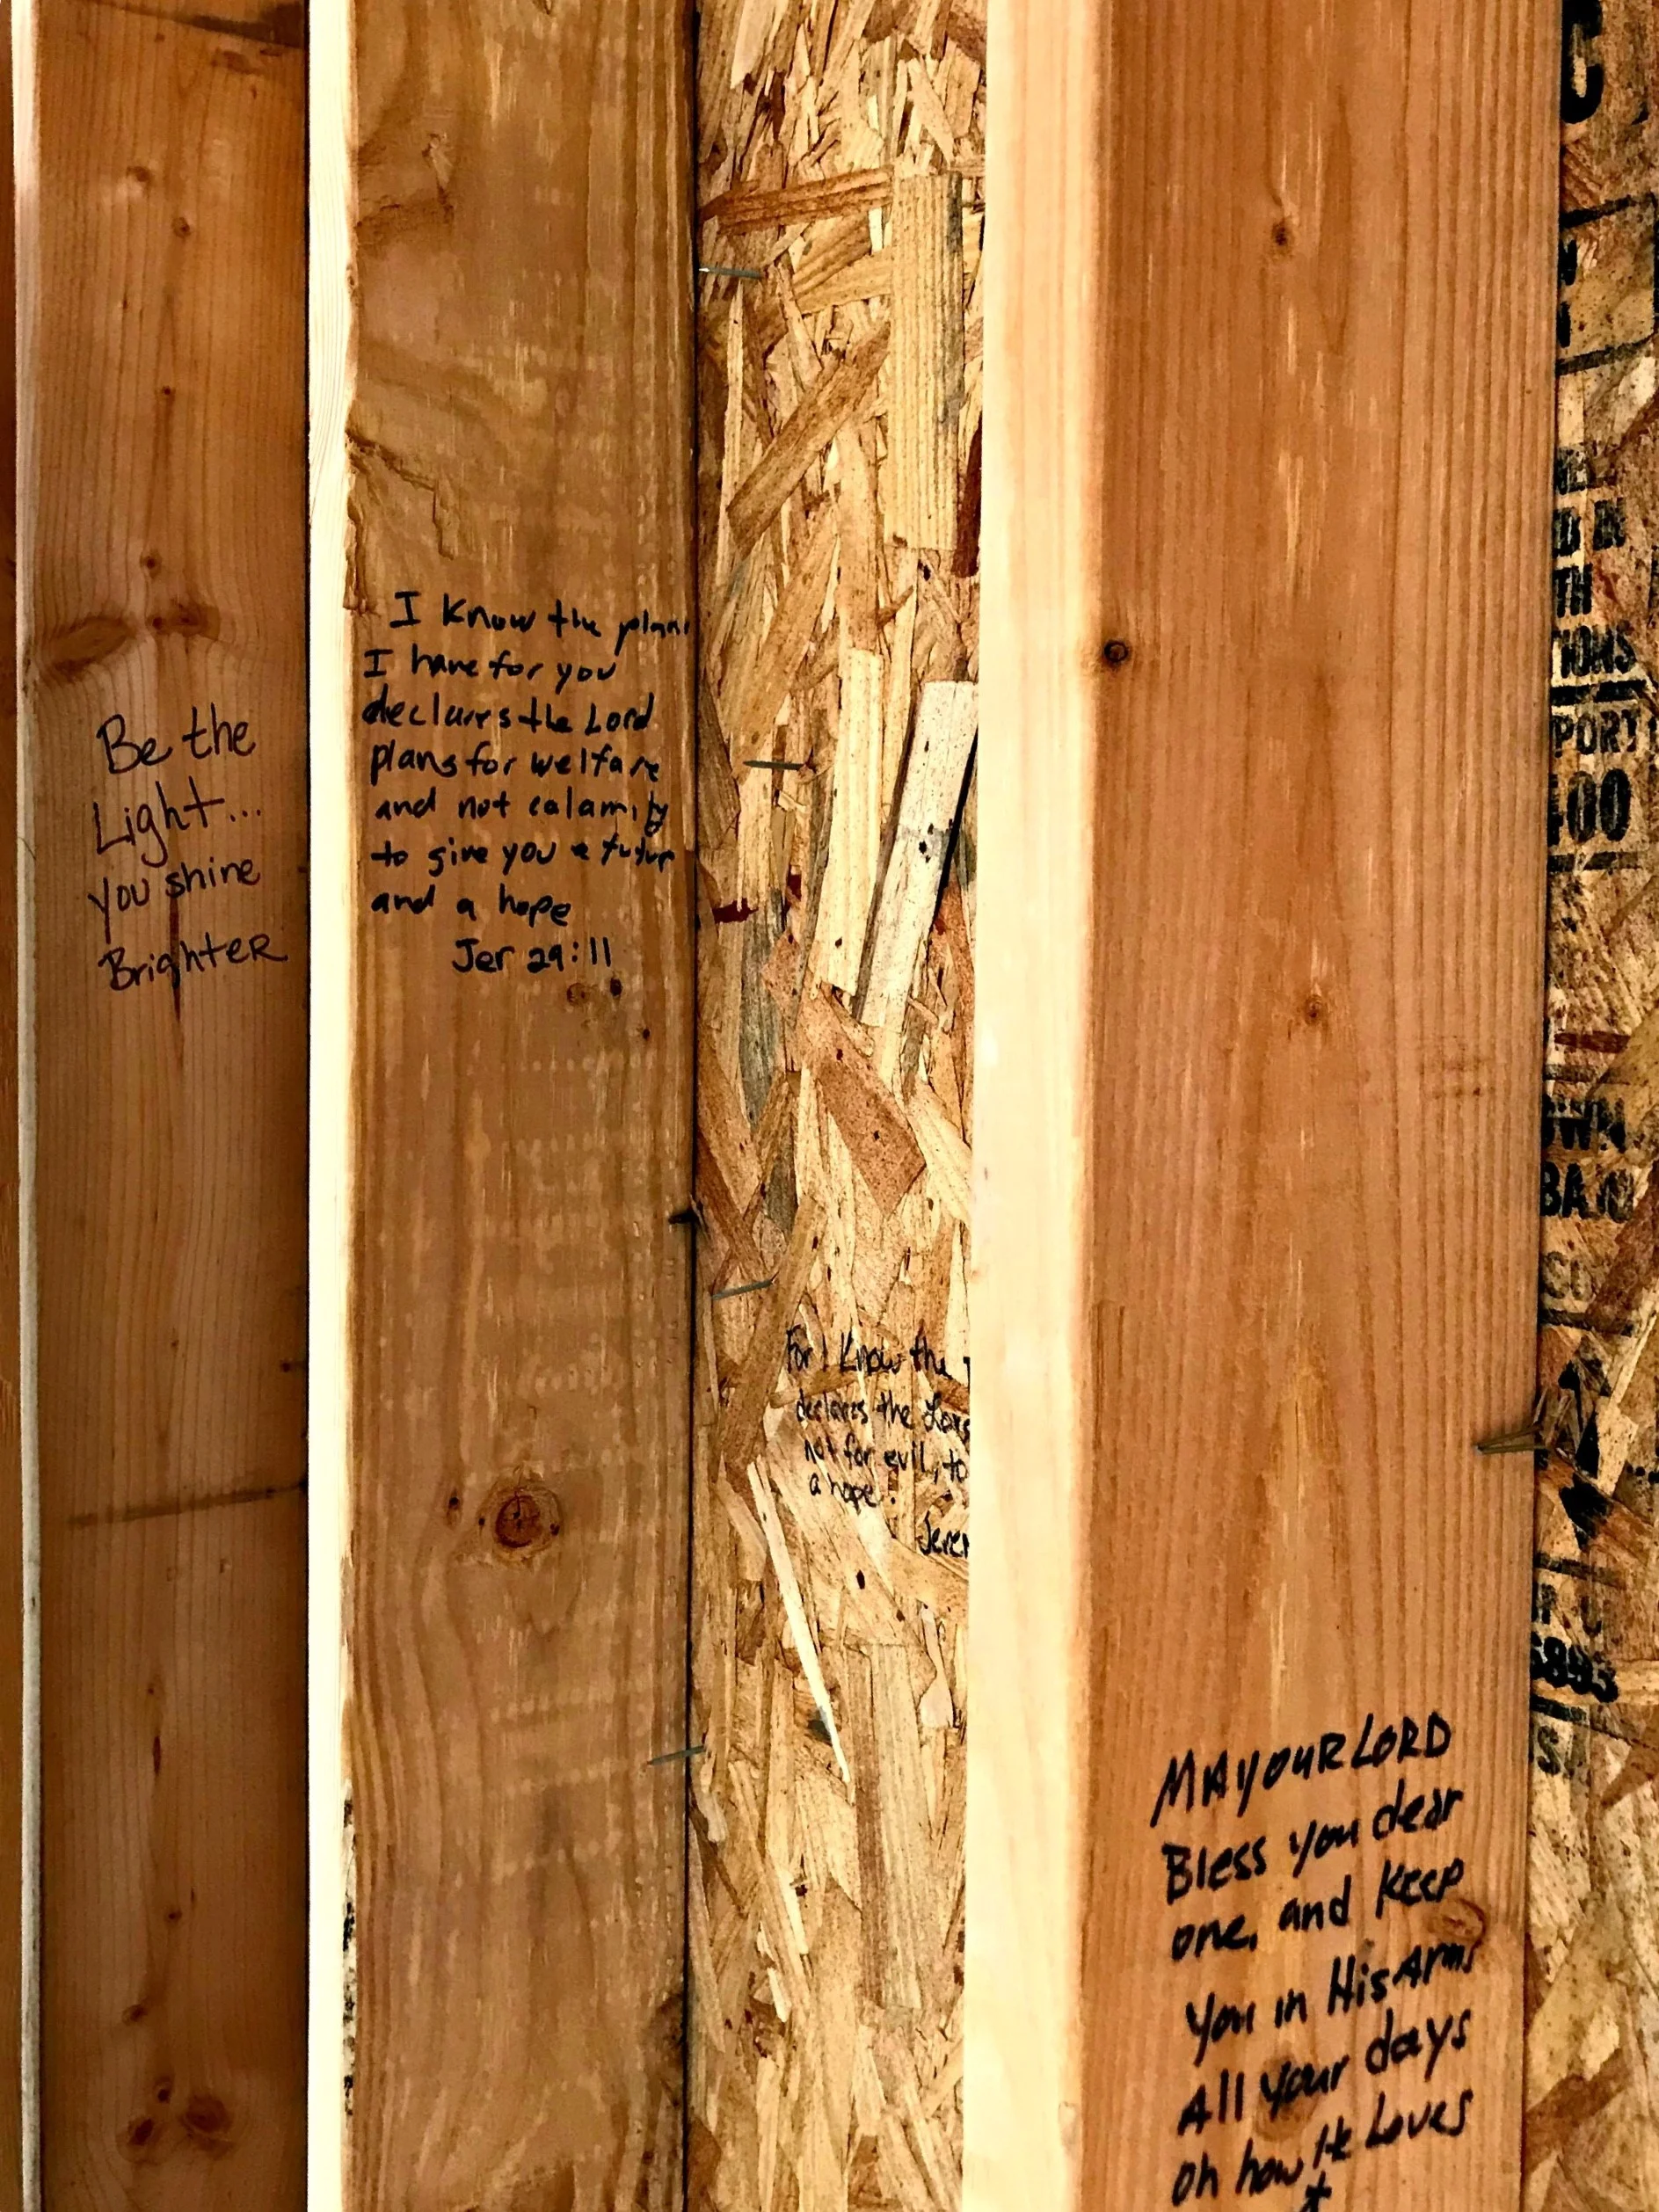 Be the
Light...
you shine
Brighter
I know the plans
I have for you
declares the Lord
plans for welfare
and not calamity
to give you a future
and a hope
Jer 29:11
For I know the
declares the Lord
not for evil, to
a hope.
Jerem
MAY OUR LORD
Bless you dear
one, and keep
you in His Arms
All your days
oh how He Loves
C
TH
TIONS
PORT
400
OWN
6893